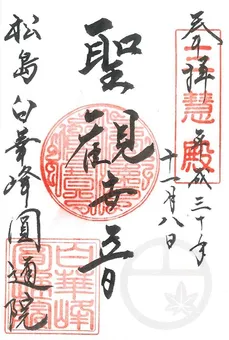 奉拝
三慧殿
平成三十年
十一月八日
聖観世音
松島白華峰圓通院
白華峰
圓通院